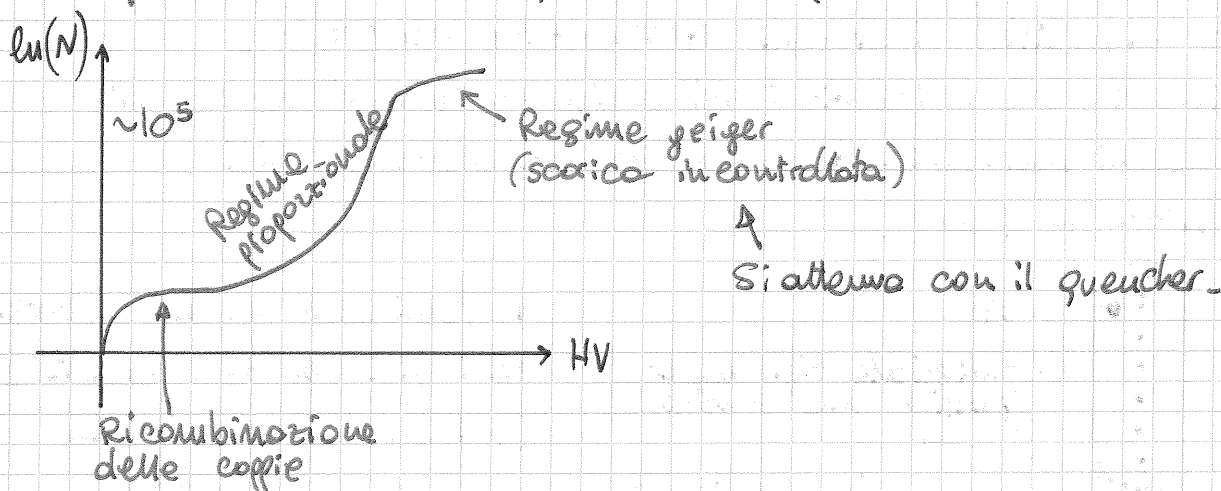 ln(N)
~10⁵
Regime
proporzionale
Regime geiger
(scarica incontrollata)
Si attenua con il quencher.
HV
Ricombinazione
delle coppie